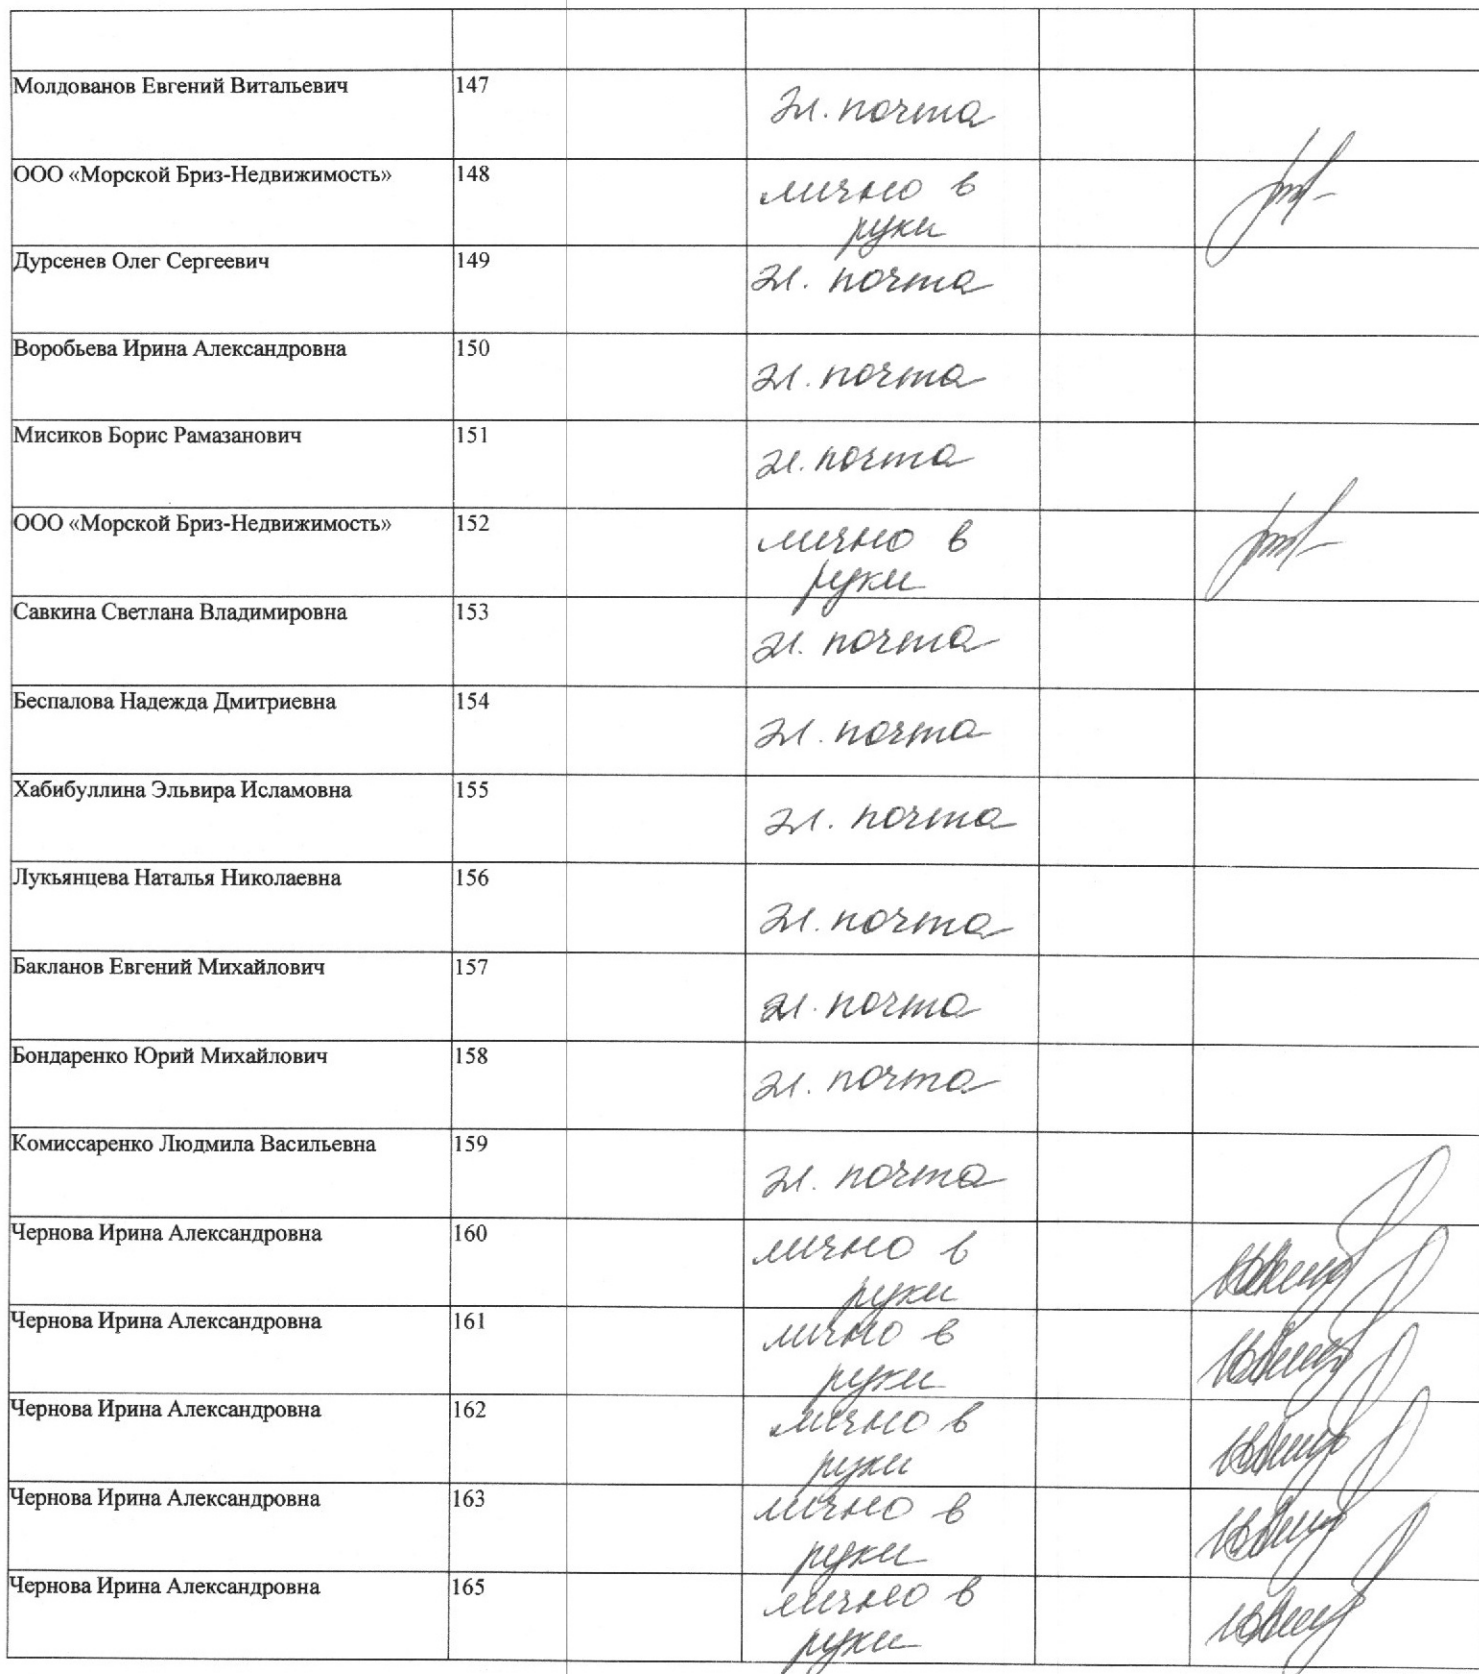 Молдованов Евгений Витальевич 147 эл. почта
ООО «Морской Бриз-Недвижимость» 148 лично в
руки
Дурсенев Олег Сергеевич 149 эл. почта
Воробьева Ирина Александровна 150 эл. почта
Мисиков Борис Рамазанович 151 эл. почта
ООО «Морской Бриз-Недвижимость» 152 лично в
руки
Савкина Светлана Владимировна 153 эл. почта
Беспалова Надежда Дмитриевна 154 эл. почта
Хабибуллина Эльвира Исламовна 155 эл. почта
Лукьянцева Наталья Николаевна 156 эл. почта
Бакланов Евгений Михайлович 157 эл. почта
Бондаренко Юрий Михайлович 158 эл. почта
Комиссаренко Людмила Васильевна 159 эл. почта
Чернова Ирина Александровна 160 лично в
руки
Чернова Ирина Александровна 161 лично в
руки
Чернова Ирина Александровна 162 лично в
руки
Чернова Ирина Александровна 163 лично в
руки
Чернова Ирина Александровна 165 лично в
руки